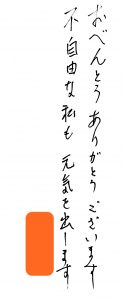 おべんとうありがとうございます
不自由な私も元気を出します